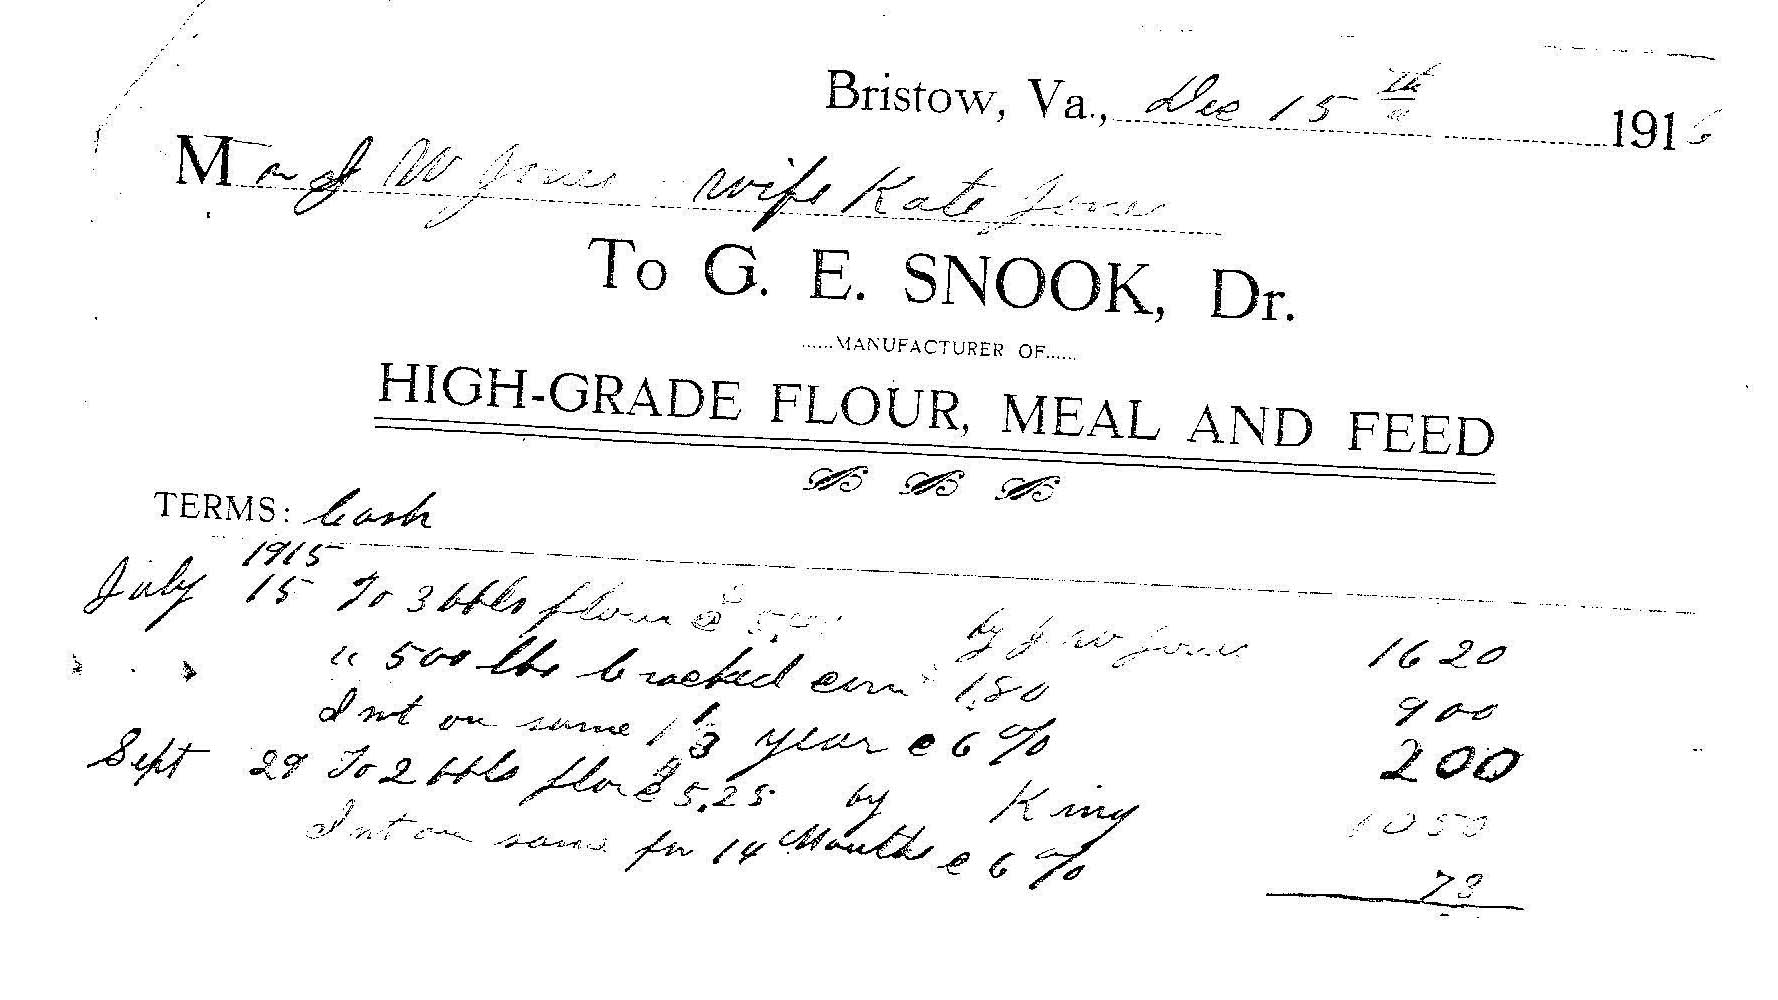 Bristow, Va., Dec 15th 1916
M J W Jones wife Kate Jones
To G. E. SNOOK, Dr.
......MANUFACTURER OF......
HIGH-GRADE FLOUR, MEAL AND FEED
TERMS: Cash
1915
July 15 To 3 bbls flour @ 5.40 by J. W Jones 16 20
" " " 500 lbs Cracked corn 1.80 9 00
Int on same 1 1/3 year @ 6 % 2 00
Sept 29 To 2 bbls flor @ 5.25 by King 10 50
Int on same for 14 Months @ 6 % 73